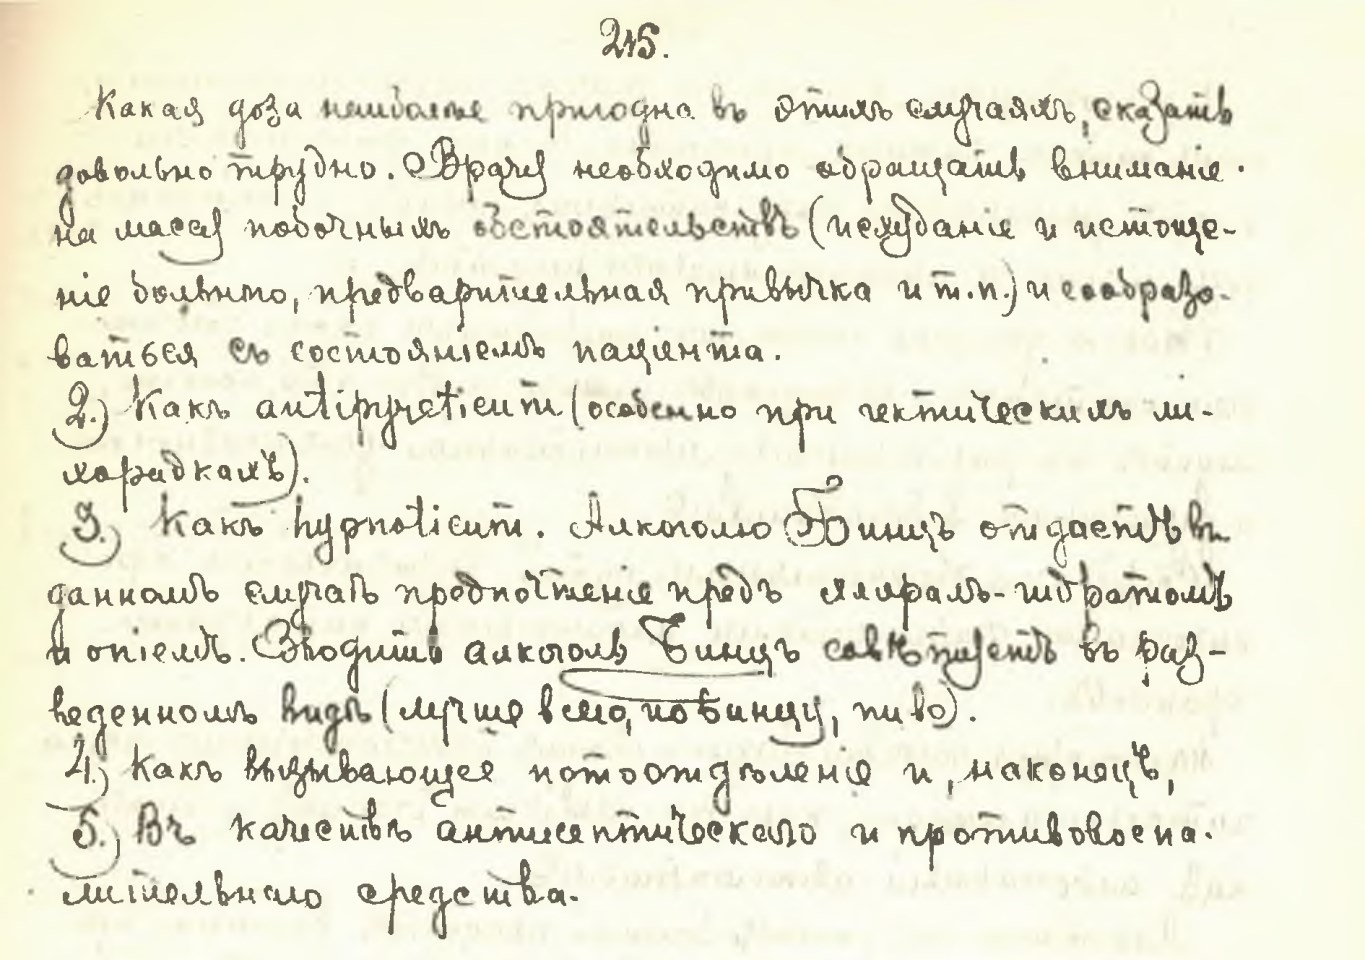 215.
Какая доза наиболѣе пригодна въ этихъ случаяхъ, сказать
довольно трудно. Врачу необходимо обращать вниманіе
на массу побочныхъ обстоятельствъ (исхуданіе и истоще-
ніе больнаго, предварительная привычка и т. п.) и сообразо-
ваться съ состояніемъ паціента.
2.) Какъ antipyreticum (особенно при гектическихъ ли-
хорадкахъ).
3.) Какъ hypnoticum. Алкоголю Бинцъ отдаетъ въ
данномъ случаѣ предпочтеніе предъ хлорал-гидратомъ
и опіемъ. Вводить алкоголь Бинцъ совѣтуетъ въ раз-
веденномъ видѣ (лучше всего, по Бинцу, пиво).
4.) Какъ вызывающее потоотдѣленіе и, наконецъ,
5.) Въ качествѣ антисептическаго и противовоспа-
лительнаго средства.